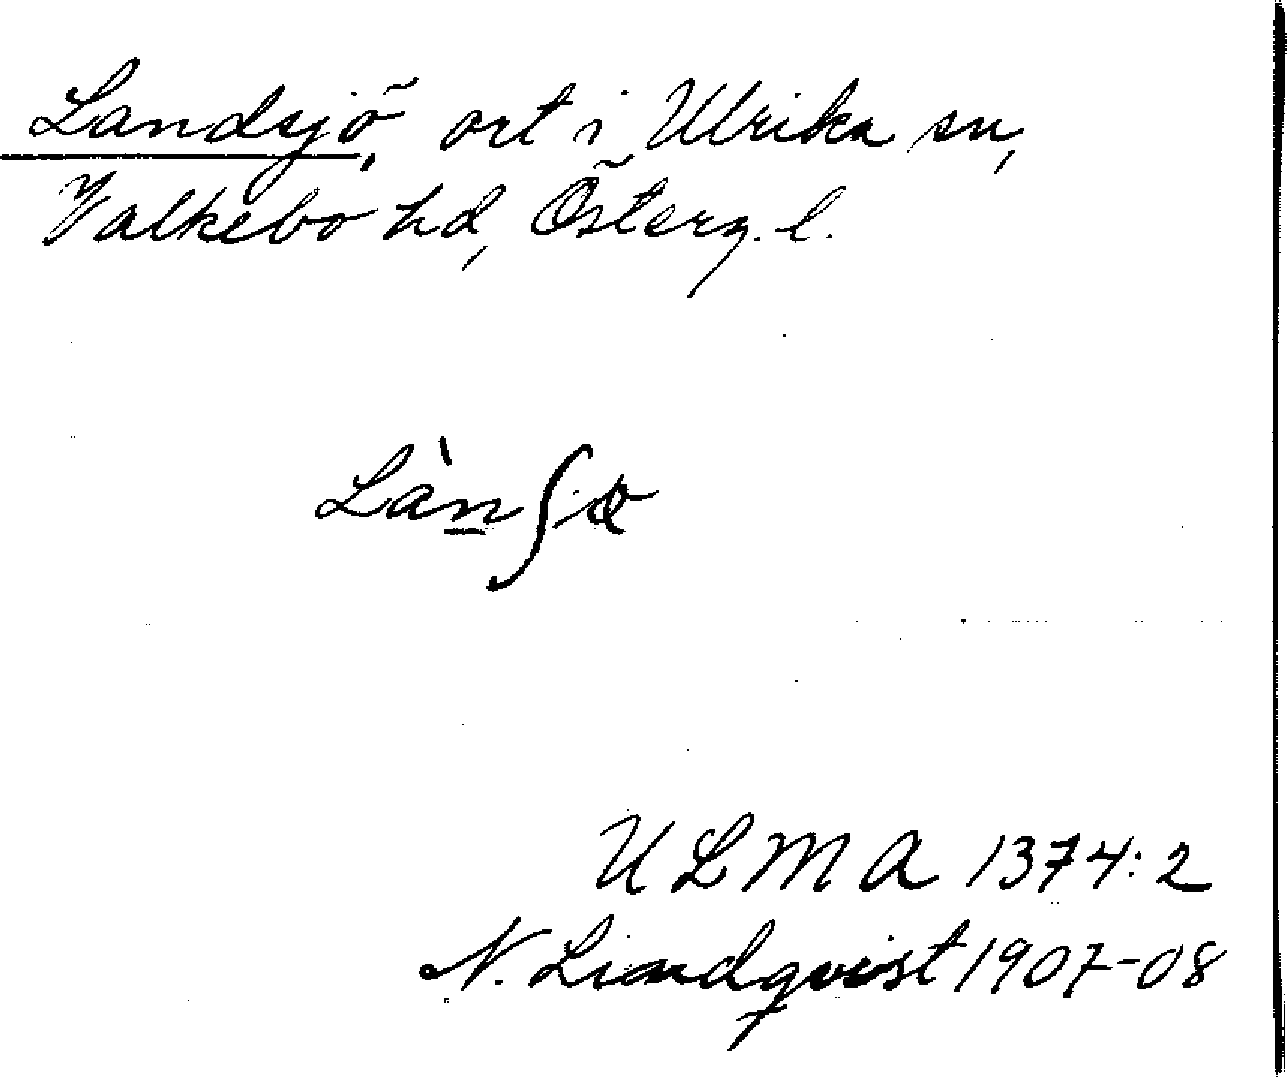 Landsjö, ort i Ulrika sn,
Valkebo hd, Österg. l.
ULMA 1374:2
N. Lindqvist 1907-08